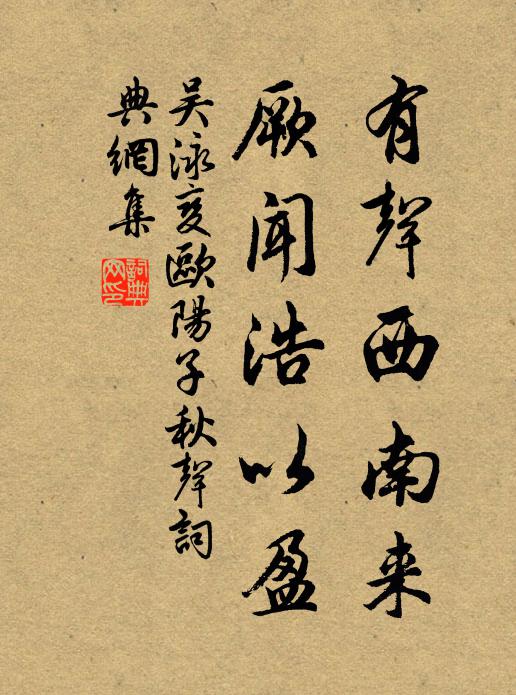 有聲西南来
厥聞浩以盈
吳泳变歐陽子秋聲詞
典網集
詞典网印